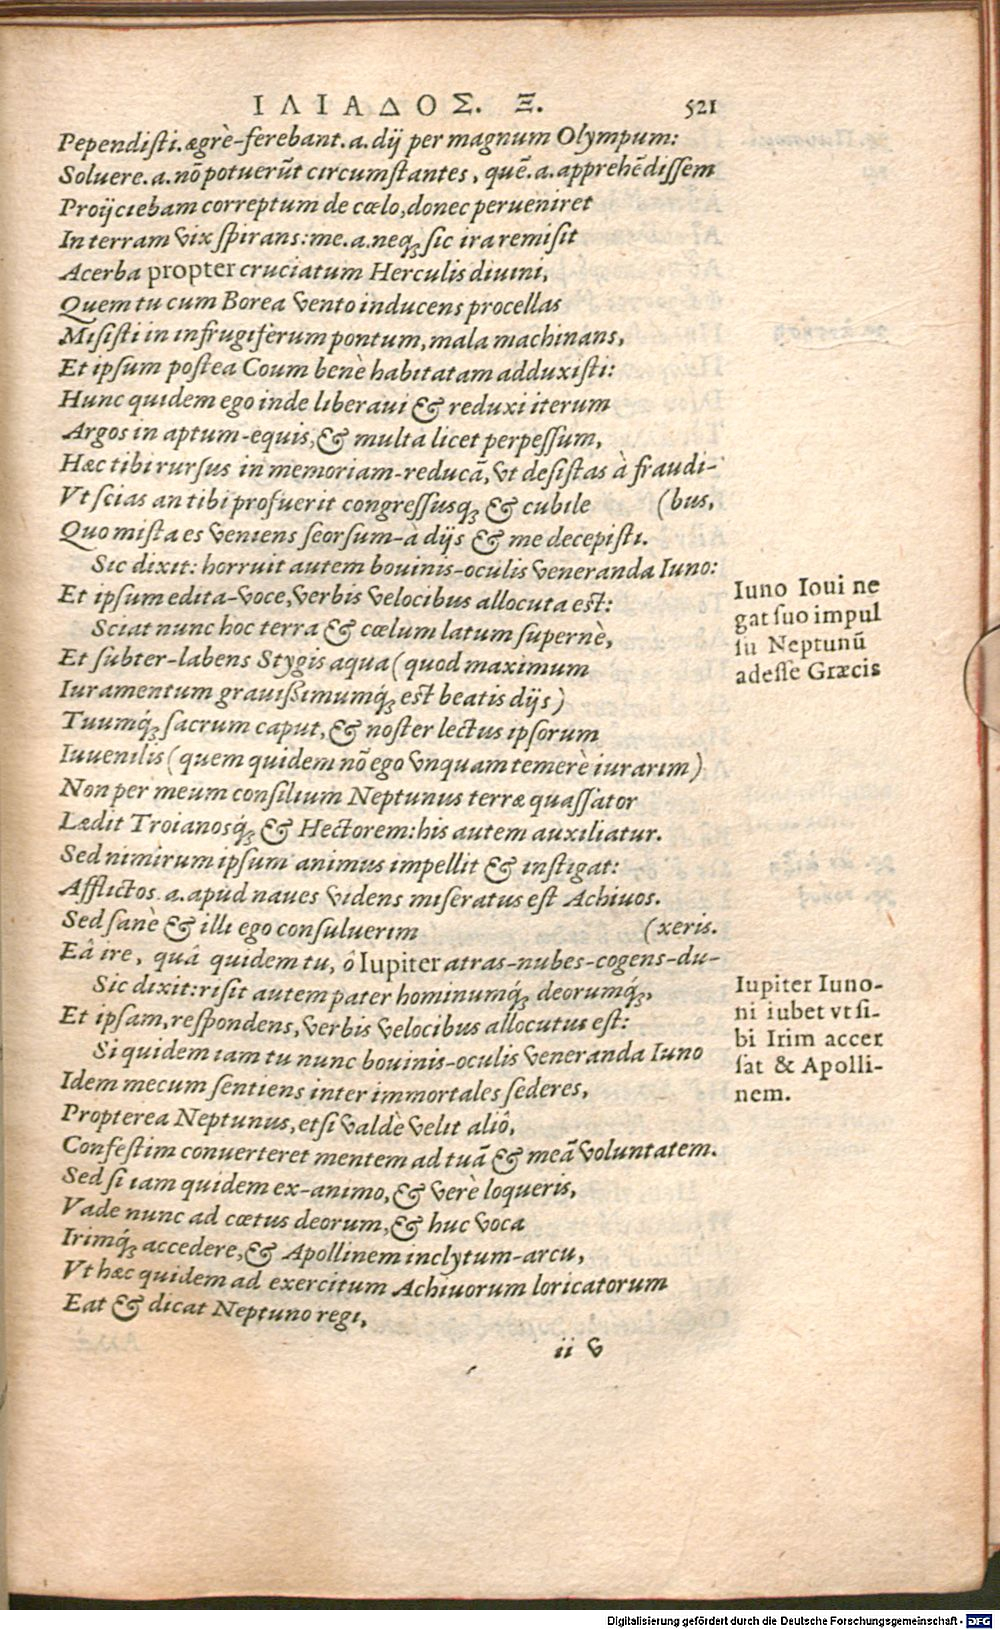 ΙΛΙΑΔΟΣ. Ξ. 521
Pependisti. ægrè-ferebant. a. dij per magnum Olympum:
Soluere. a. nõ potuerũt circumstantes, quẽ. a. apprehẽdissem
Proijciebam correptum de cœlo, donec perueniret
In terram vix spirans: me. a. neq; sic ira remisit
Acerba propter cruciatum Herculis diuini,
Quem tu cum Borea vento inducens procellas
Misisti in infrugiferum pontum, mala machinans,
Et ipsum postea Coum benè habitatam adduxisti:
Hunc quidem ego inde liberaui & reduxi iterum
Argos in aptum-equis, & multa licet perpessum,
Hæc tibi rursus in memoriam-reducã, vt desistas à fraudi-
Vt scias an tibi profuerit congressusq; & cubile (bus,
Quo mista es veniens seorsum-à dijs & me decepisti.
Sic dixit: horruit autem bouinis-oculis veneranda Iuno:
Et ipsum edita-voce, verbis velocibus allocuta est:
Sciat nunc hoc terra & cœlum latum supernè,
Et subter-labens Stygis aqua (quod maximum
Iuramentum grauissimumq́; est beatis dijs)
Tuumq́; sacrum caput, & noster lectus ipsorum
Iuuenilis (quem quidem nõ ego vnquam temerè iurarim)
Non per meum consilium Neptunus terræ quassator
Lædit Troianosq́; & Hectorem: his autem auxiliatur.
Sed nimirum ipsum animus impellit & instigat:
Afflictos. a. apud naues videns miseratus est Achiuos.
Sed sanè & illi ego consuluerim (xeris.
Eâ ire, quâ quidem tu, ô Iupiter atras-nubes-cogens-du-
Sic dixit: risit autem pater hominumq́; deorumq́;,
Et ipsam, respondens, verbis velocibus allocutus est:
Si quidem iam tu nunc bouinis-oculis veneranda Iuno
Idem mecum sentiens inter immortales sederes,
Propterea Neptunus, etsi valdè velit aliò,
Confestim conuerteret mentem ad tuã & meã voluntatem.
Sed si iam quidem ex-animo, & verè loqueris,
Vade nunc ad cœtus deorum, & huc voca
Irimq́; accedere, & Apollinem inclytum-arcu,
Vt hæc quidem ad exercitum Achiuorum loricatorum
Eat & dicat Neptuno regi,
ii v
Iuno Ioui ne
gat suo impul
su Neptunũ
adesse Græcis
Iupiter Iuno-
ni iubet vt si-
bi Irim accer
sat & Apolli-
nem.
Digitalisierung gefördert durch die Deutsche Forschungsgemeinschaft - DFG